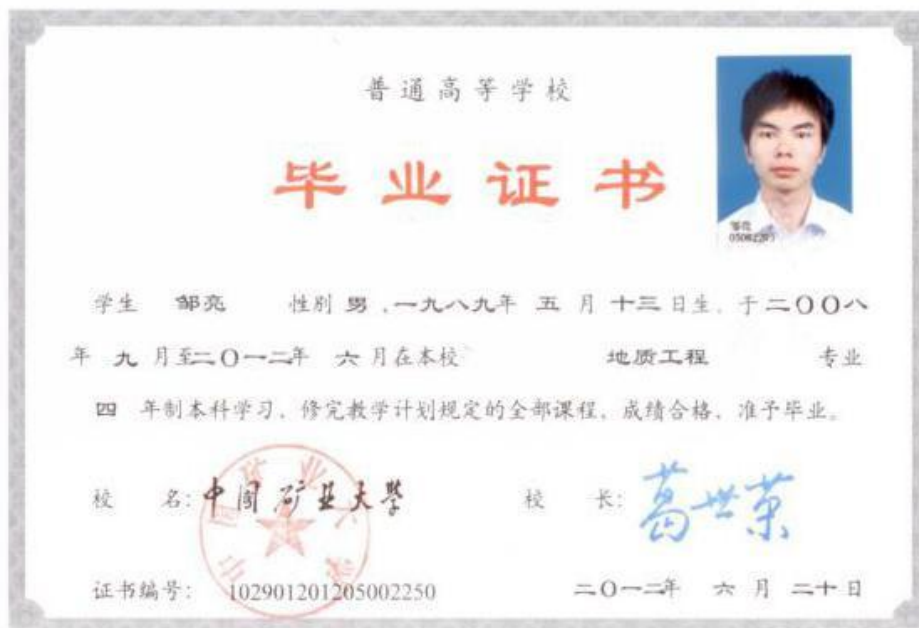 普通高等学校
毕业证书
邹亮
学生 邹亮 性别 男,一九八九年 五 月 十三日生,于二〇〇八
年 九 月至二〇一二年 六 月在本校 地质工程 专业
四 年制本科学习,修完教学计划规定的全部课程,成绩合格,准予毕业。
校 名:中国矿业大学 校 长:葛世荣
证书编号: 102901201205002250 二〇一二年 六 月 二十日